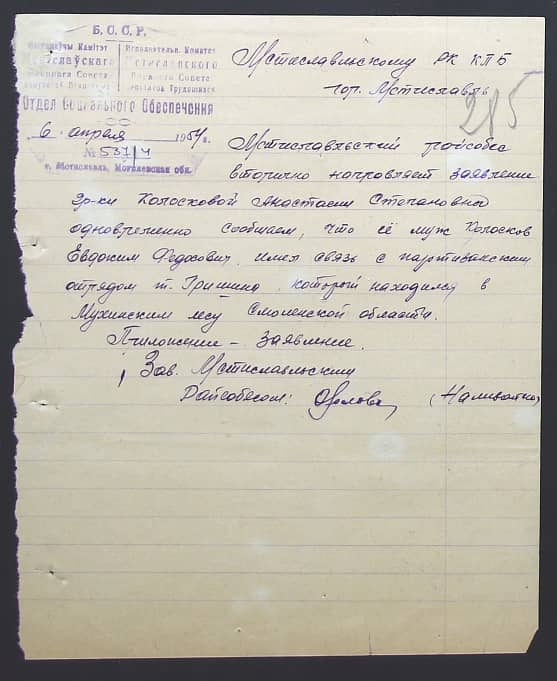 Б. С. С. Р.
Выканаўчы Камітэт
Мсціслаўскага
Раённага Совета
Исполнительн. Комитет
Мстиславского
Районного Совета
Депутатов Трудящихся
Отдел Социального Обеспечения
6 апреля 1954 г.
№ 537/4
г. Мстиславль, Могилевская обл.
Мстиславльскому РК КПБ
гор. Мстиславль
215
Мстиславльский райсобес
вторично направляет заявление
гр-ки Колосковой Анастасии Степановны
одновременно сообщаем, что её муж Колосков
Евдоким Федосович, имел связь с партизанским
отрядом т. Гришина, который находился в
Мухинском лесу Смоленской области.
Приложение – заявление.
Зав. Мстиславльским
Райсобесом: (Наливайко)